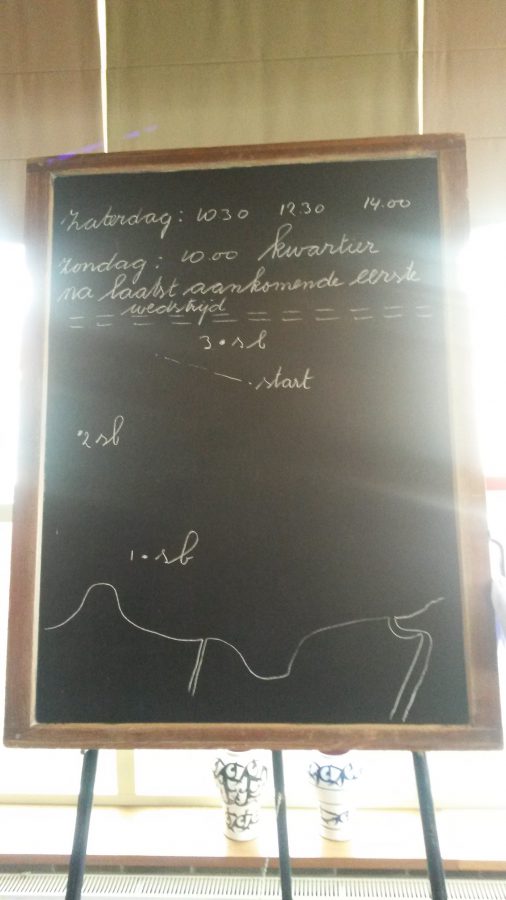 Zaterdag: 10 30 12.30 14.00
Zondag: 10.00 kwartier
na laatst aankomende eerste
wedstrijd
3 • sb
start
•2 sb
1 • sb